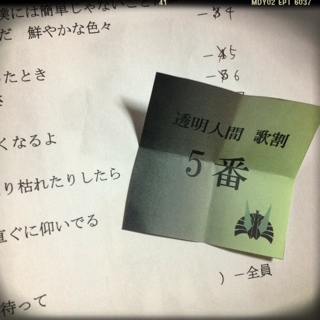 41
MDY02 EPT 6037
僕には簡単じゃないこと
だ 鮮やかな色々
したとき
くなるよ
り枯れたりしたら
直ぐに仰いでる
待って
4
5
6
透明人間 歌割
5番
)-全員